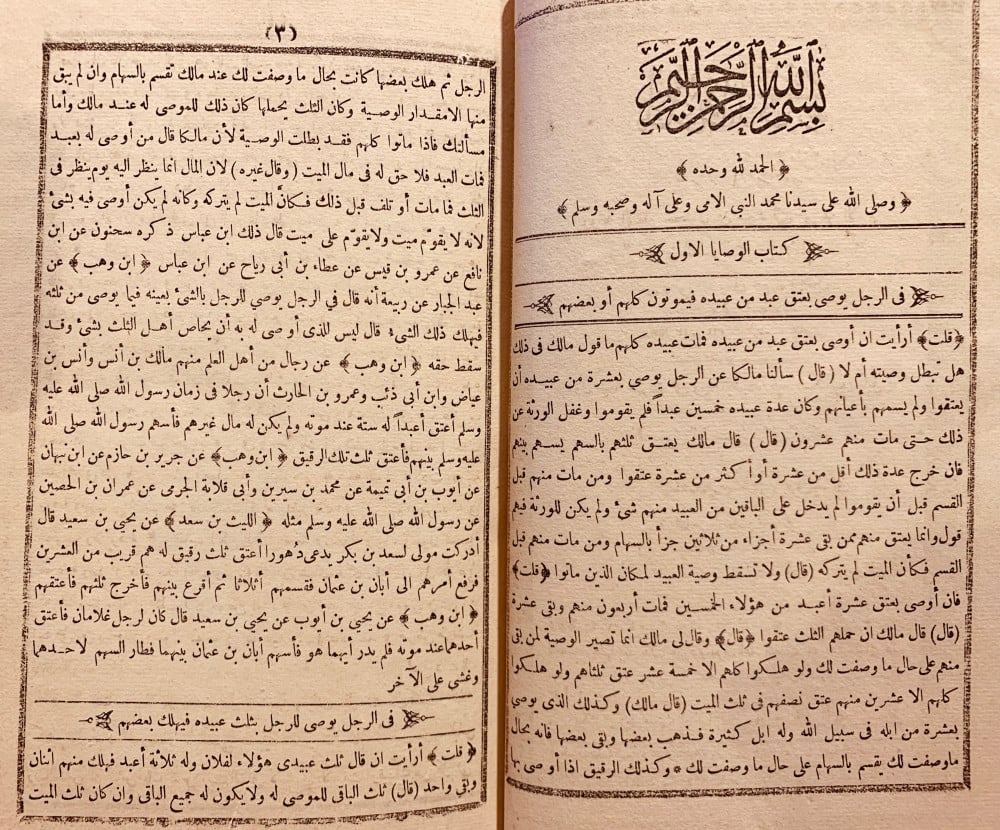 بسم الله الرحمن الرحيم
﴿ الحمد لله وحده ﴾
﴿ وصلى الله على سيدنا محمد النبي الامى وعلى آله وصحبه وسلم ﴾
كتاب الوصايا الاول
فى الرجل يوصى بعتق عبد من عبيده فيموتون كلهم أو بعضهم
﴿قلت﴾ أرأيت ان أوصى بعتق عبد من عبيده فمات عبيده كلهم ما قول مالك فى ذلك
هل تبطل وصيته أم لا (قال) سألنا مالكا عن الرجل يوصى بعشرة من عبيده أن
يعتقوا ولم يسمهم بأعيانهم وكان عدة عبيده خمسين عبداً فلم يقوموا وغفل الورثة عن
ذلك حتى مات منهم عشرون (قال) قال مالك يعتق ثلثهم بالسهم يسهم بينهم
فان خرج عدة ذلك أقل من عشرة أو أكثر من عشرة عتقوا ومن مات منهم قبل
القسم قبل أن يقوموا لم يدخل على الباقين من العبيد منهم شئ ولم يكن للورثة فيهم
قول وانما يعتق منهم ممن بقى عشرة أجزاء من ثلاثين جزأ بالسهام ومن مات منهم قبل
القسم فكأن الميت لم يتركه (قال) ولا تسقط وصية العبيد لمكان الذين ماتوا ﴿قلت﴾
فان أوصى بعتق عشرة أعبد من هؤلاء الخمسين فمات أربعون منهم وبقى عشرة
(قال) قال مالك ان حملهم الثلث عتقوا ﴿قال﴾ وقال لى مالك انما تصير الوصية لمن بقى
منهم على حال ما وصفت لك ولو هلكوا كلهم الا خمسة عشر عتق ثلثاهم ولو هلكوا
كلهم الا عشرين منهم عتق نصفهم فى ثلث الميت (قال مالك) وكذلك الذى يوصى
بعشرة من ابله فى سبيل الله وله ابل كثيرة فذهب بعضها وبقى بعضها فانه بحال
ما وصفت لك يقسم بالسهام على حال ما وصفت لك * وكذلك الرقيق اذا أوصى بها
(٣)
الرجل ثم هلك بعضها كانت بحال ما وصفت لك عند مالك تقسم بالسهام وان لم يبق
منها الا مقدار الوصية وكان الثلث يحملها كان ذلك للموصى له عند مالك وأما
مسألتك فاذا ماتوا كلهم فقد بطلت الوصية لأن مالكا قال من أوصى له بعبد
فمات العبد فلا حق له فى مال الميت (وقال غيره) لان المال انما ينظر اليه يوم ينظر فى
الثلث فما مات أو تلف قبل ذلك فكأن الميت لم يتركه وكانه لم يكن أوصى فيه بشئ
لانه لا يقوّم ميت ولا يقوّم على ميت قال ذلك ابن عباس ذكره سحنون عن ابن
نافع عن عمرو بن قيس عن عطاء بن أبى رباح عن ابن عباس ﴿ ابن وهب ﴾ عن
عبد الجبار عن ربيعة أنه قال فى الرجل يوصى للرجل بالشئ بعينه فيما يوصى من ثلثه
فيهلك ذلك الشىء قال ليس للذى أوصى له به أن يحاص أهل الثلث بشئ وقد
سقط حقه ﴿ ابن وهب ﴾ عن رجال من أهل العلم منهم مالك بن أنس وأنس بن
عياض وابن أبى ذئب وعمرو بن الحارث أن رجلا فى زمان رسول الله صلى الله عليه
وسلم أعتق أعبداً له ستة عند موته ولم يكن له مال غيرهم فأسهم رسول الله صلى الله
عليه وسلم بينهم فأعتق ثلث تلك الرقيق ﴿ ابن وهب﴾ عن جرير بن حازم عن ابن نبهان
عن أيوب بن أبى تميمة عن محمد بن سيرين وأبى قلابة الجرمى عن عمران بن الحصين
عن رسول الله صلى الله عليه وسلم مثله ﴿ الليث بن سعد﴾ عن يحيى بن سعيد قال
أدركت مولى لسعد بن بكر يدعى دُهورا أعتق ثلث رقيق له هم قريب من العشرين
فرفع أمرهم الى أبان بن عثمان فقسمهم أثلاثا ثم أقرع بينهم فأخرج ثلثهم فأعتقهم
﴿ ابن وهب ﴾ عن يحيى بن أيوب عن يحيى بن سعيد قال كان لرجل غلامان فأعتق
أحدهما عند موته فلم يدر أيهما هو فأسهم أبان بن عثمان بينهما فطار السهم لاحدهما
وغشى على الآخر
فى الرجل يوصى للرجل بثلث عبيده فيهلك بعضهم
﴿ قلت ﴾ أرأيت ان قال ثلث عبيدى هؤلاء لفلان وله ثلاثة أعبد فهلك منهم اثنان
وبقى واحد (قال) ثلث الباقى للموصى له ولا يكون له جميع الباقى وان كان ثلث الميت